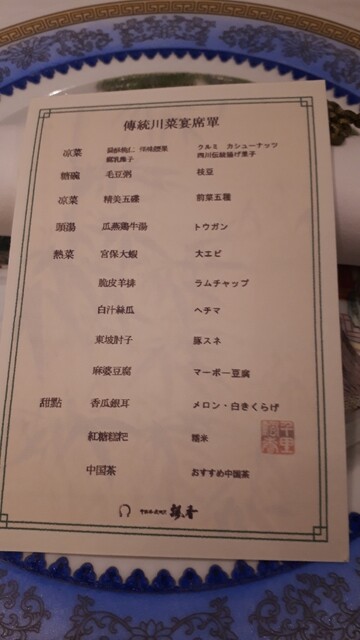 傳統川菜宴席單
凉菜 桃仁 怪味腰果 クルミ カシューナッツ
四川伝統揚げ菓子
糖碗 毛豆粥 枝豆
凉菜 精美五碟 前菜五種
頭湯 瓜蒸鶏牛湯 トウガン
熱菜 宮保大蝦 大エビ
脆皮羊排 ラムチャップ
白汁絲瓜 ヘチマ
東坡肘子 豚スネ
麻婆豆腐 マーボー豆腐
甜點 香瓜銀耳 メロン・白きくらげ
紅糖糍粑 糯米
中国茶 おすすめ中国茶